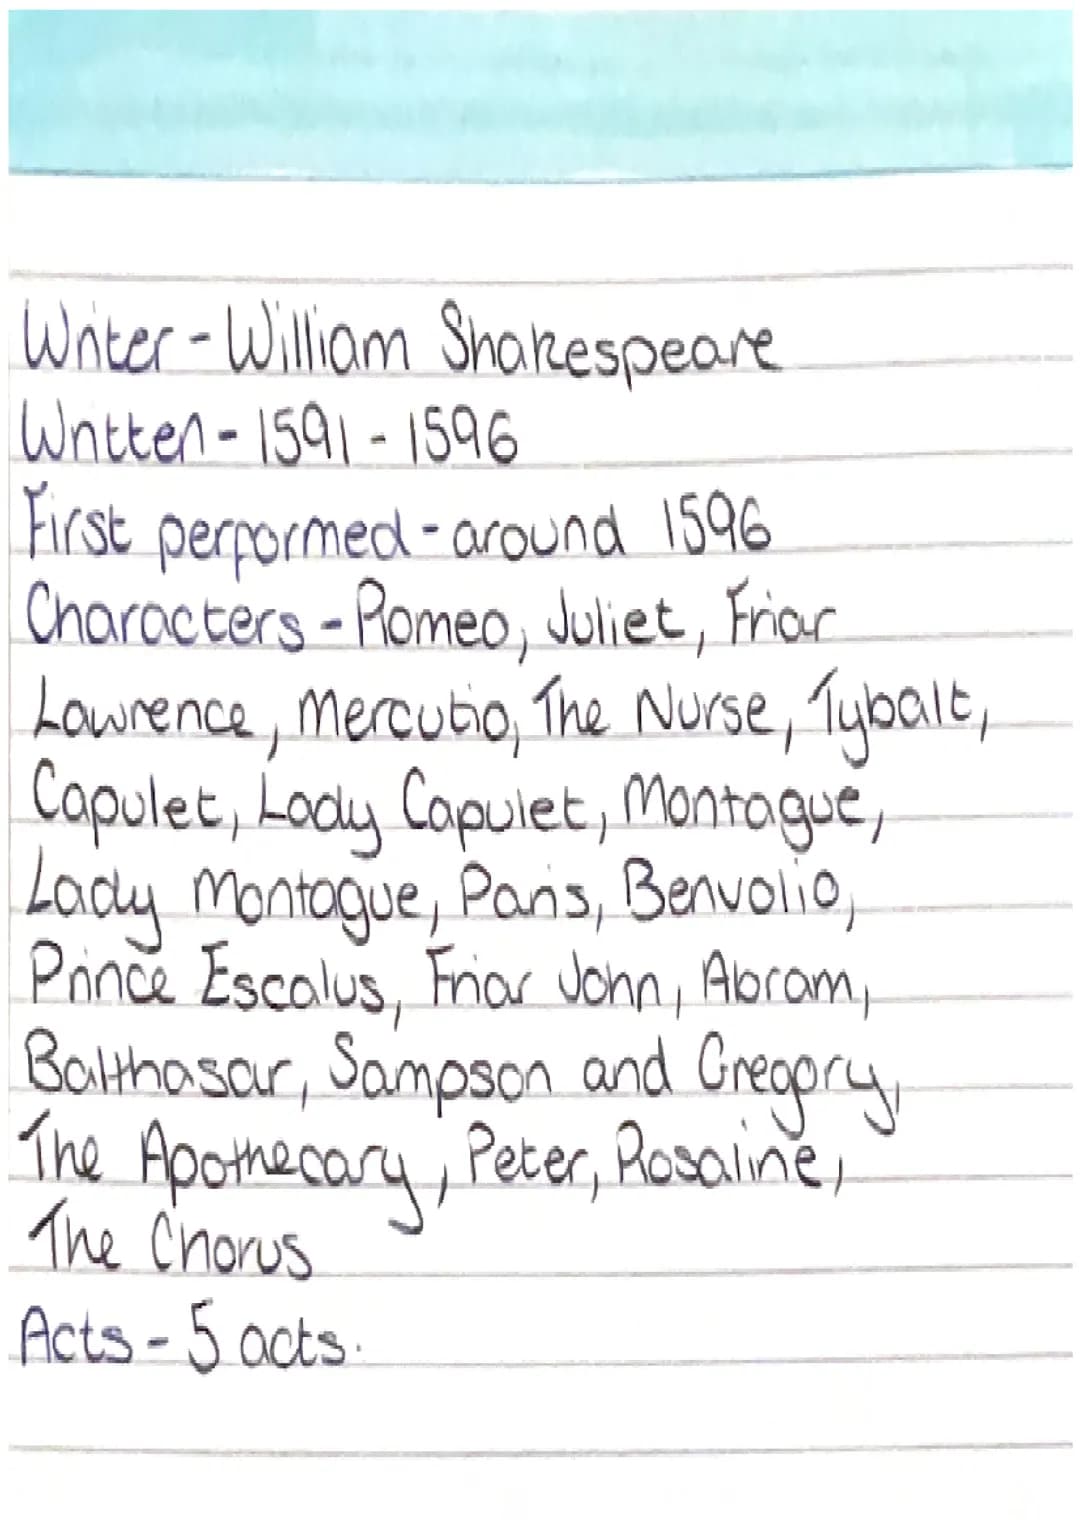 Writer - William Shakespeare
Written - 1591 - 1596
First performed - around 1596
Characters - Romeo, Juliet, Friar
Lawrence, Mercutio, The Nurse, Tybalt,
Capulet, Lady Capulet, Montague,
Lady Montague, Paris, Benvolio,
Prince Escalus, Friar John, Abram,
Balthasar, Sampson and Gregory,
The Apothecary, Peter, Rosaline,
The Chorus
Acts - 5 acts.